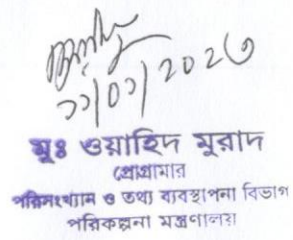 ১১/০১/2023
মুঃ ওয়াহিদ মুরাদ
প্রোগ্রামার
পরিসংখ্যান ও তথ্য ব্যবস্থাপনা বিভাগ
পরিকল্পনা মন্ত্রণালয়